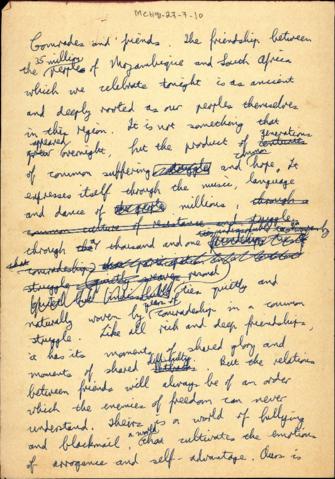 MCH91-27-7-10
Comrades and friends. The friendship between
35 million
the peoples of Mozambique and South Africa
which we celebrate tonight is as ancient
and deeply rooted as our peoples themselves
in this region. It is not something that
appeared generations
grew overnight, but the product of centuries
common
of common suffering struggle and hope. It
expresses itself through the music, language
and dance of the people millions, through a
common culture of resistance and struggle
through the thousand and one
comradeship
struggle quietly woven round
ties quietly and
years of
naturally woven by comradeship in a common
struggle. Like all rich and deep friendships,
it has its moments of shared glory and
difficulty
moments of shared setbacks. But the relations
between friends will always be of an order
which the enemies of freedom can never
understand. Theirs is a world of bullying
a world
and blackmail, that cultivates the emotions
of arrogance and self-advantage. Ours is